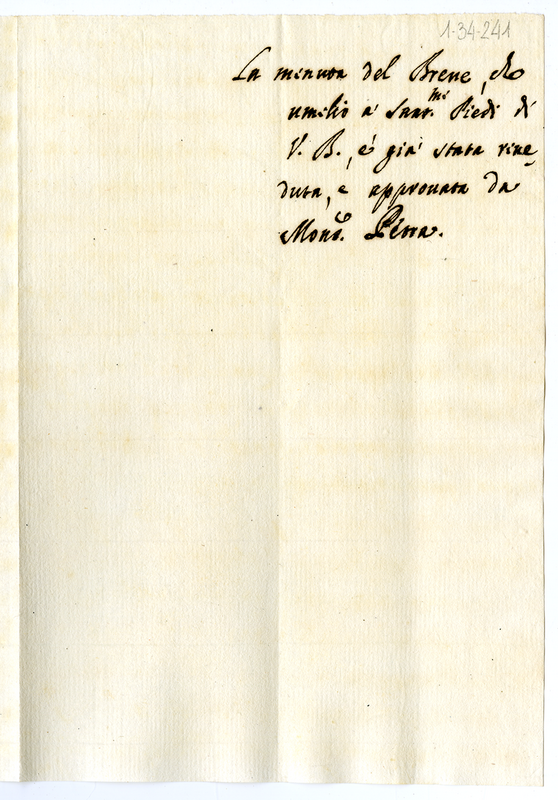 1-34-241
La minuta del Breve, che
umilio a' Sant.mi Piedi di
V. B., é già stata rive,
duta, e approvata da
Mons.e Petra.